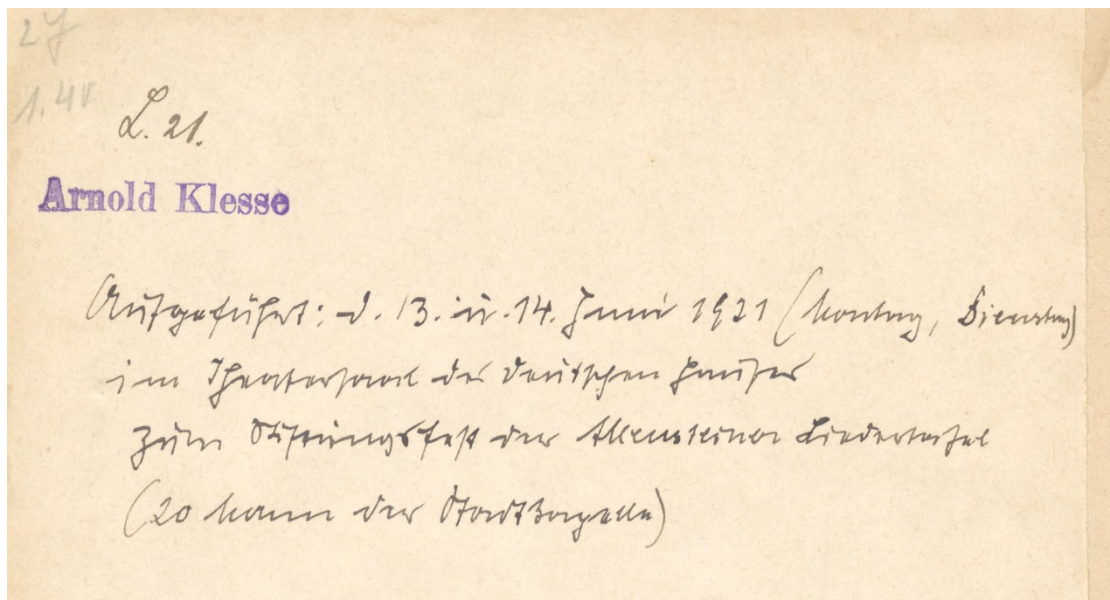 L. 21.
Arnold Klesse
Aufgeführt: d. 13. u. 14. Juni 1921 (Montag, Dienstag)
im Theatersaal des Deutschen Hauses
zum Stiftungsfest der Allensteiner Liedertafel
(20 Mann der Stadtkapelle)